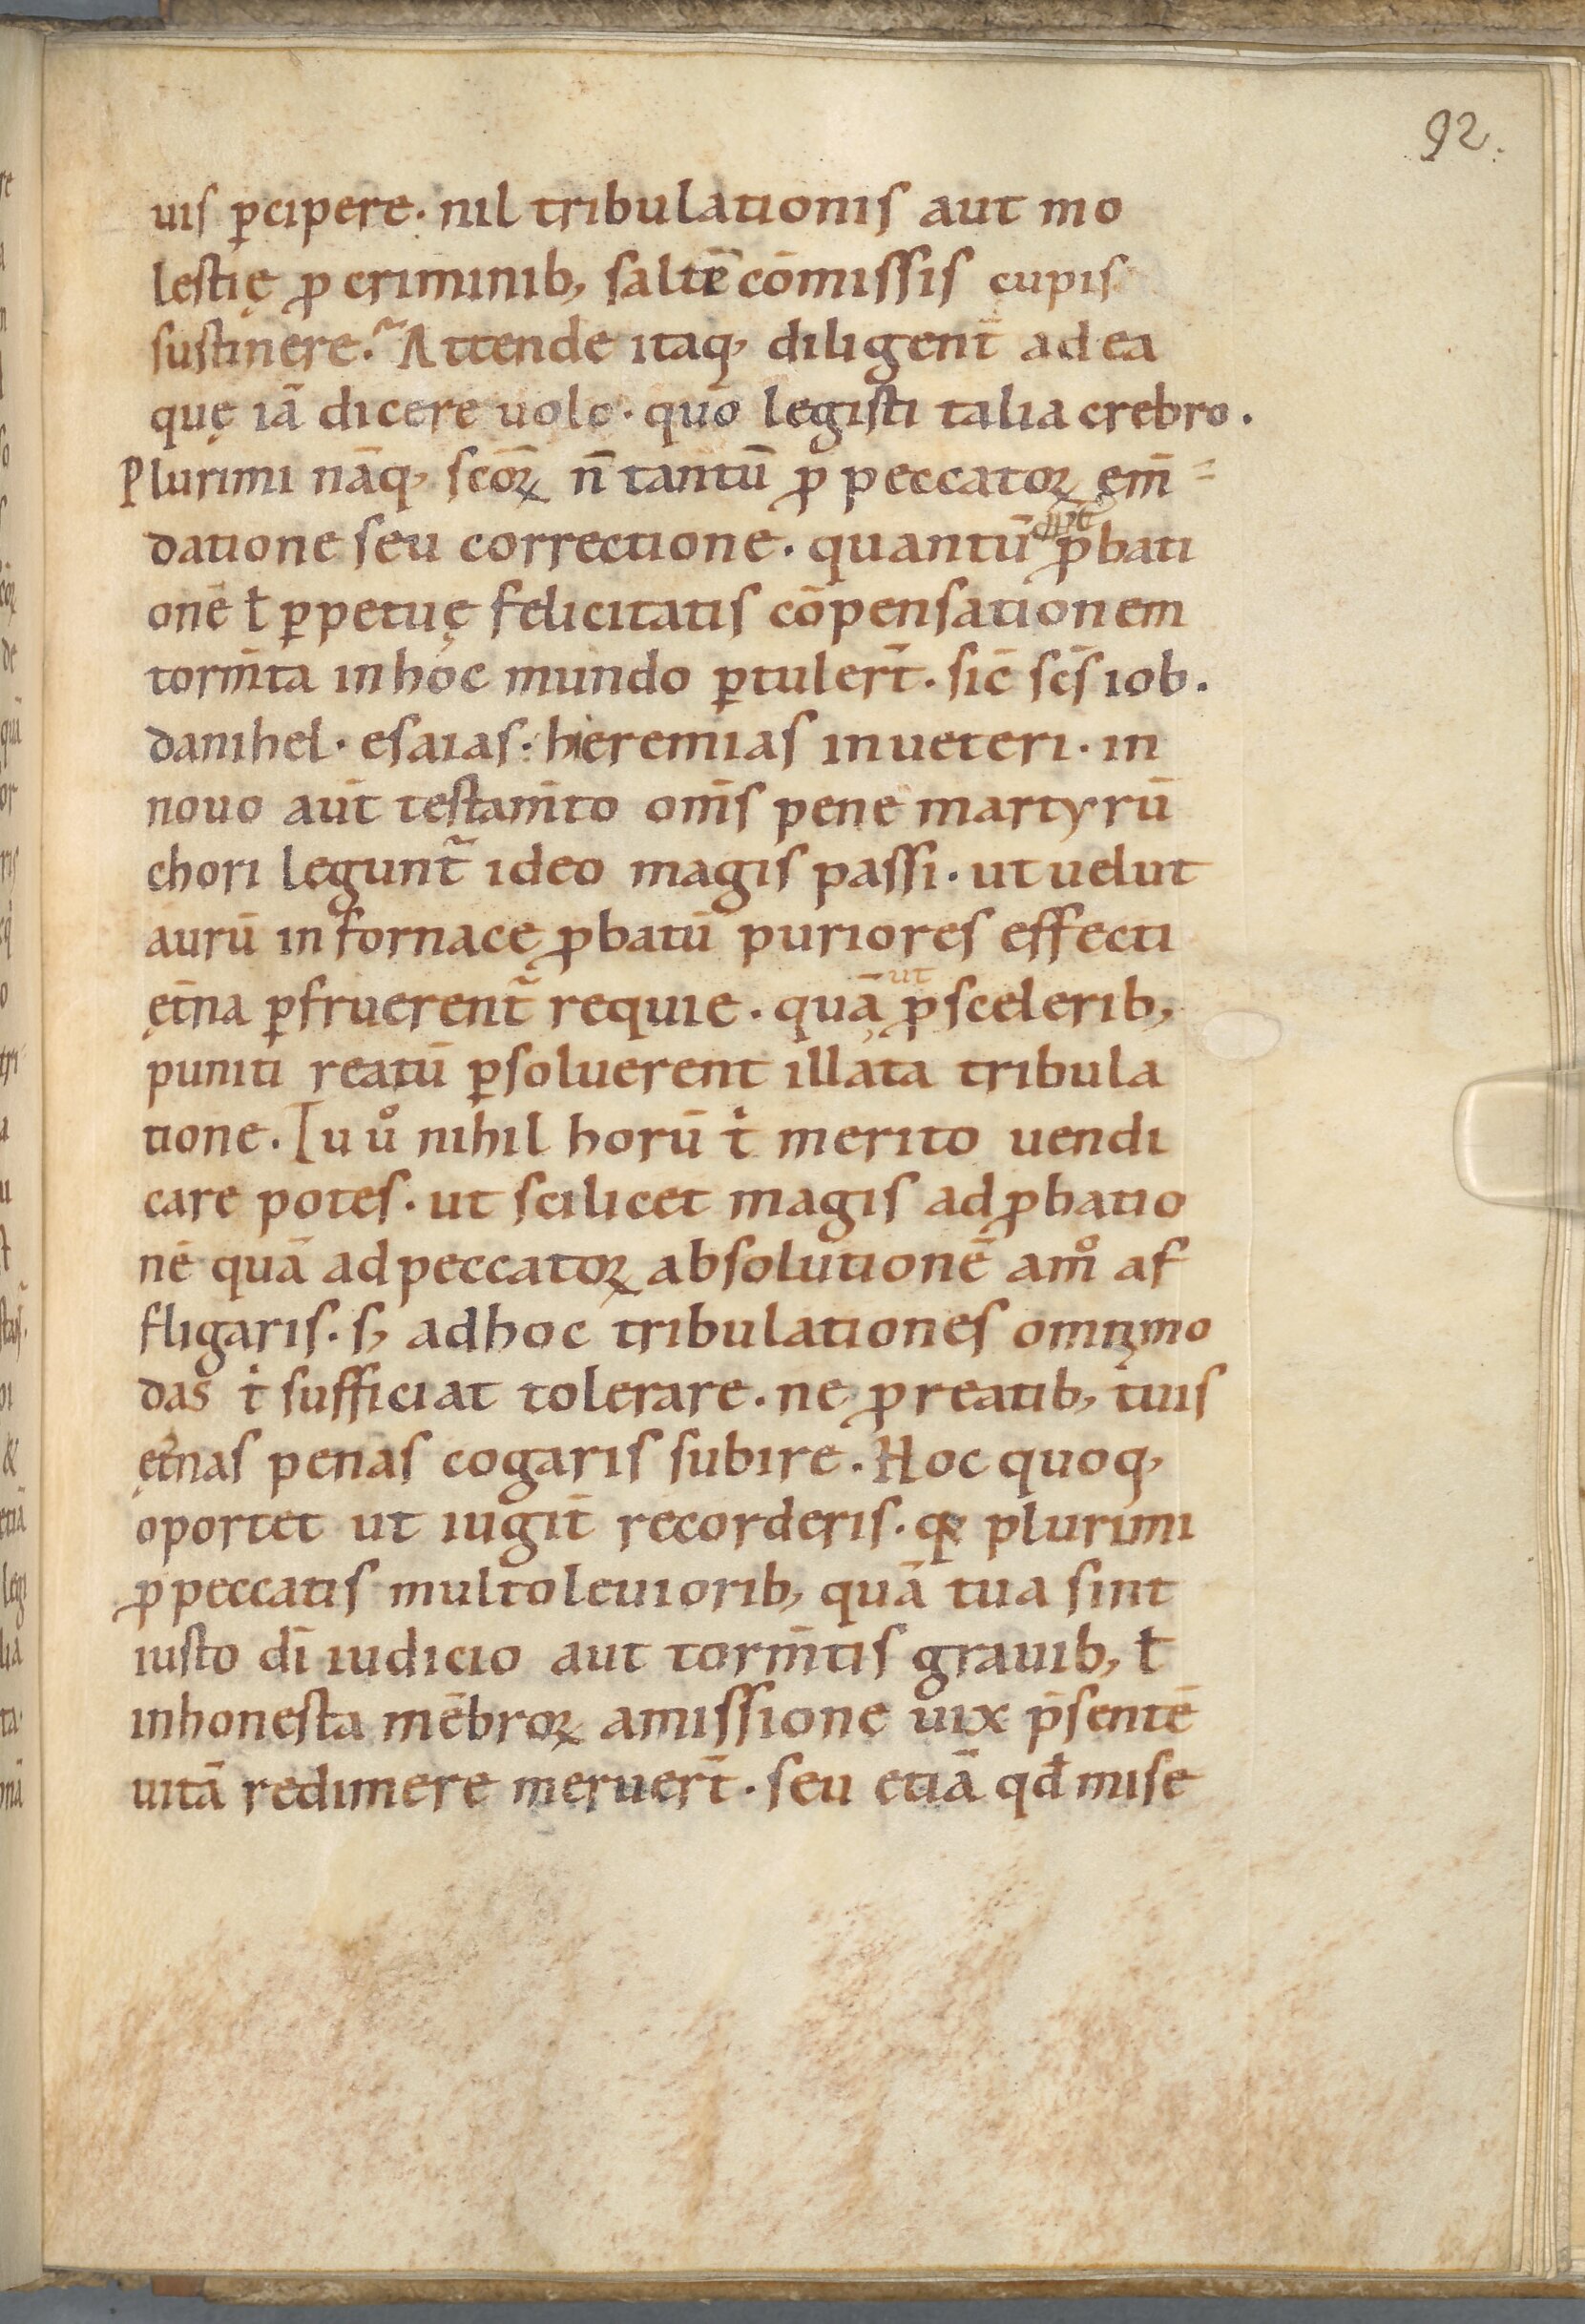 92.
uis ꝑcipere. nil tribulationis aut mo
lestię ꝓ criminib; saltē cōmissis cupis
sustinere? Attende itaq; diligent̄ ad ea
quę iā dicere uolo. quō legisti talia crebro.
Plurimi nāq; scōꝝ n̄ tantū ꝓ peccatoꝝ em̄
datione seu correctione. quantū ꝓbati
onē ł ꝑpetuę felicitatis cōpensationem
torm̄ta in hoc mundo ꝑtulert̄. sic̄ scs̄ iob.
danihel. esaias. hieremias in ueteri. in
nouo aut̄ testam̄to om̄s pene martyrū
chori legunt᷑ ideo magis passi. ut uelut
aurū in fornace ꝓbatū puriores effecti
ęt̄na ꝑfruerent᷑ requie. quā ut ꝓ scelerib;
puniti reatū ꝑsoluerent illata tribula
tione. Tu uͦ nihil horū tⁱ merito uendi
care potes. ut scilicet magis ad ꝓbatio
nē quā ad peccatoꝝ absolutionē am̊ af
fligaris. s; ad hoc tribulationes omnimo
das tⁱ sufficiat tolerare. ne ꝓ reatib; tuis
ęt̄nas penas cogaris subire. Hoc quoq;
oportet ut iugit̄ recorderis. qꝛ plurimi
ꝓ peccatis multo leuiorib; quā tua sint
iusto dī iudicio aut torm̄tis grauib; ł
inhonesta mēbroꝝ amissione uix p̄sentē
uitā redimere meruert̄. seu etiā qd̄ mise